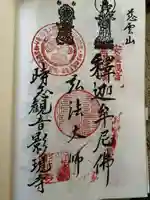 慈雲山
釋迦牟尼佛
弘法大師
時念觀音影現寺